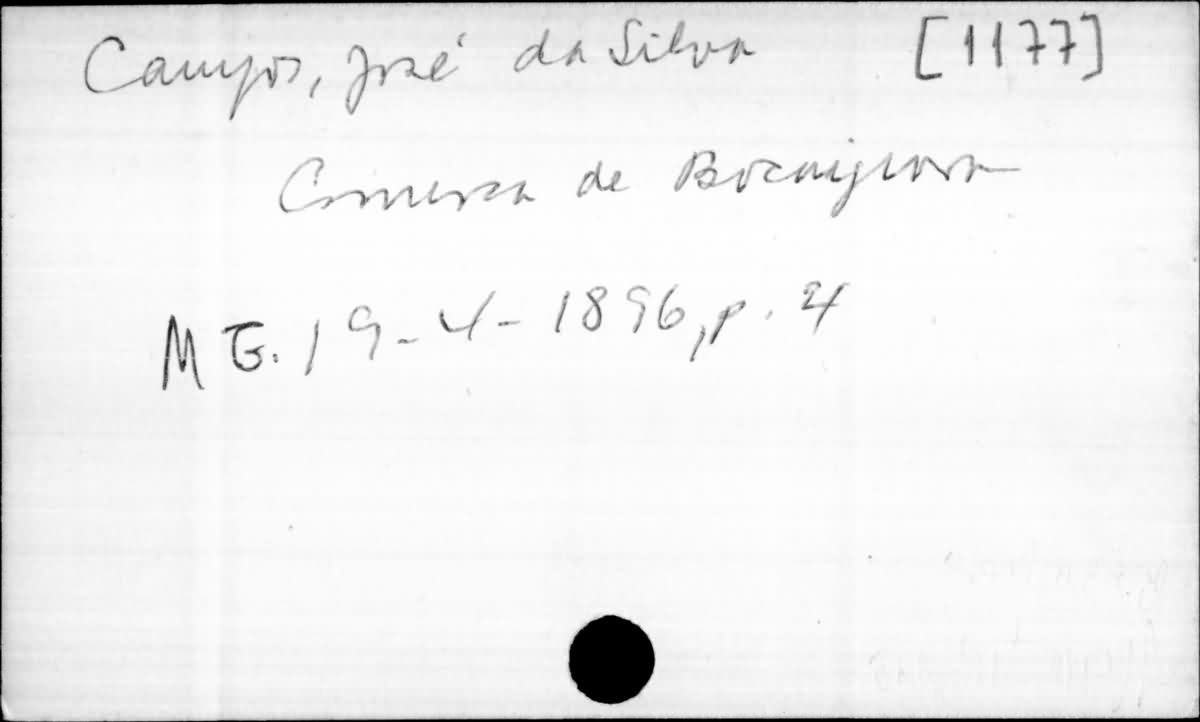 Campos, José da Silva [1177]
Comarca de Bocaiguva
MG. 19-4-1896, p. 4